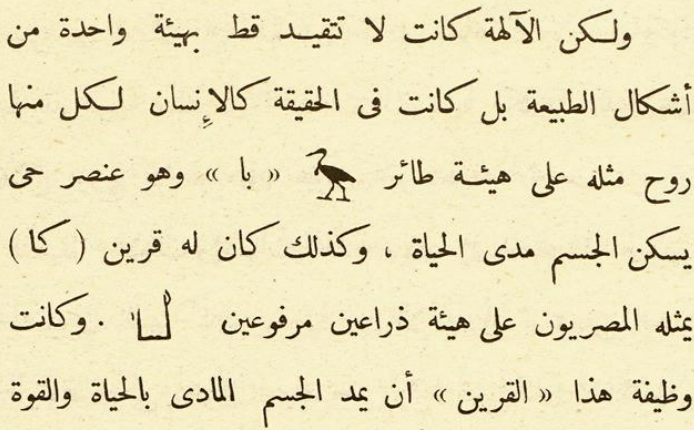 ولكن الآلهة كانت لا تتقيد قط بهيئة واحدة من
أشكال الطبيعة بل كانت فى الحقيقة كالإنسان لكل منها
روح مثله على هيئة طائر « با » وهو عنصر حى
يسكن الجسم مدى الحياة ، وكذلك كان له قرين ( كا )
يمثله المصريون على هيئة ذراعين مرفوعين . وكانت
وظيفة هذا « القرين » أن يمد الجسم المادى بالحياة والقوة